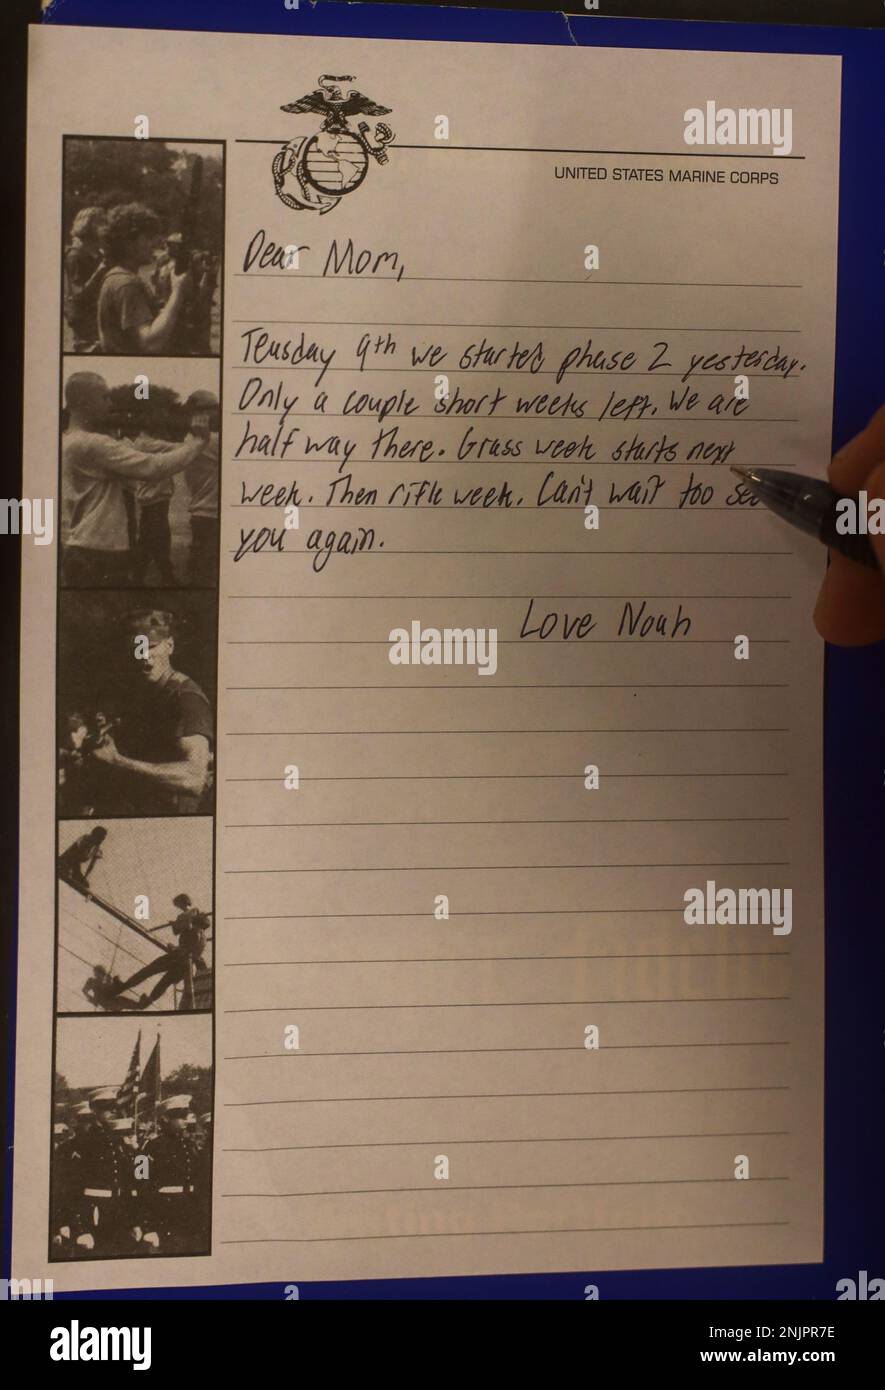 UNITED STATES MARINE CORPS
Dear Mom,
Teusday 9th we started phase 2 yesterday.
Only a couple short weeks left. We are
half way there. Grass week starts next
week. Then rifle week. Can't wait too see
you again.
Love Noah
alamy
Image ID: 2NJPR7E
www.alamy.com